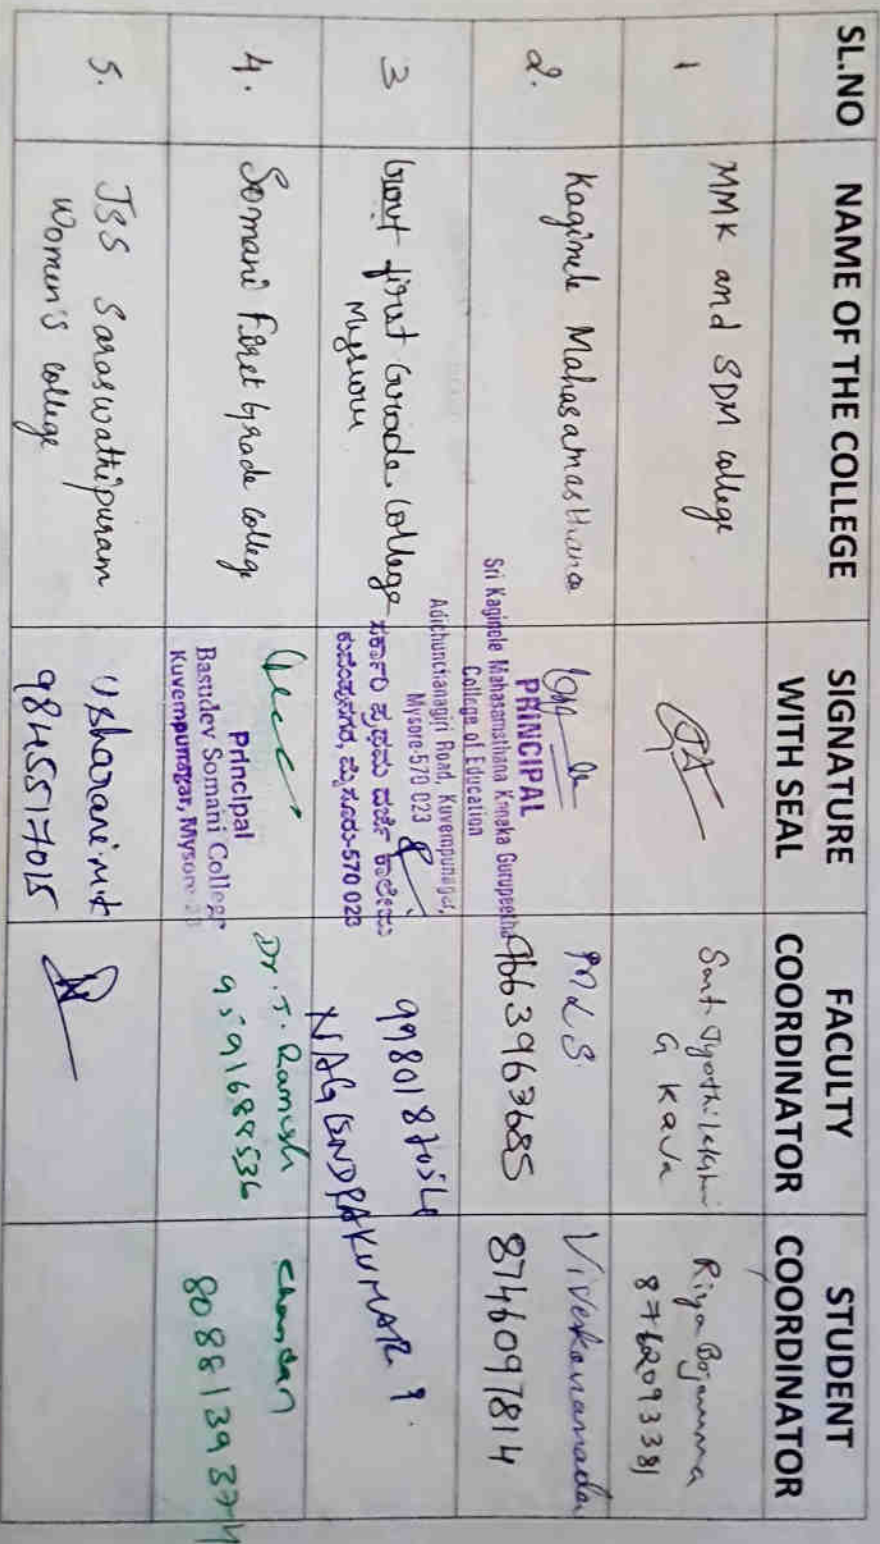 SL.NO NAME OF THE COLLEGE SIGNATURE WITH SEAL FACULTY COORDINATOR STUDENT COORDINATOR
1 MMK and SDM college
Smt. Jyothilakshmi
G Kava
Riya Bojamma
8762093381
2. Kaginele Mahasamasthana
PRINCIPAL
Sri Kaginele Mahasamsthana Kanaka Gurupeetha
College of Education
Adichunchanagiri Road, Kuvempunagar,
Mysore-570 023
M L S
9663963685
Vivekananda
8746097814
3 Govt first Grade College
Mysuru
ಸರ್ಕಾರಿ ಪ್ರಥಮ ದರ್ಜೆ ಕಾಲೇಜು
ಕುವೆಂಪುನಗರ, ಮೈಸೂರು-570 023
NAGENDRAKUMAR
4. Somani First Grade College
Principal
Basudev Somani College
Kuvempunagar, Mysore-23
Dr. T. Ramesh
9591688536
Chandan
8088139374
5. JSS Saraswathipuram
Women's College
Usharani
9845517015